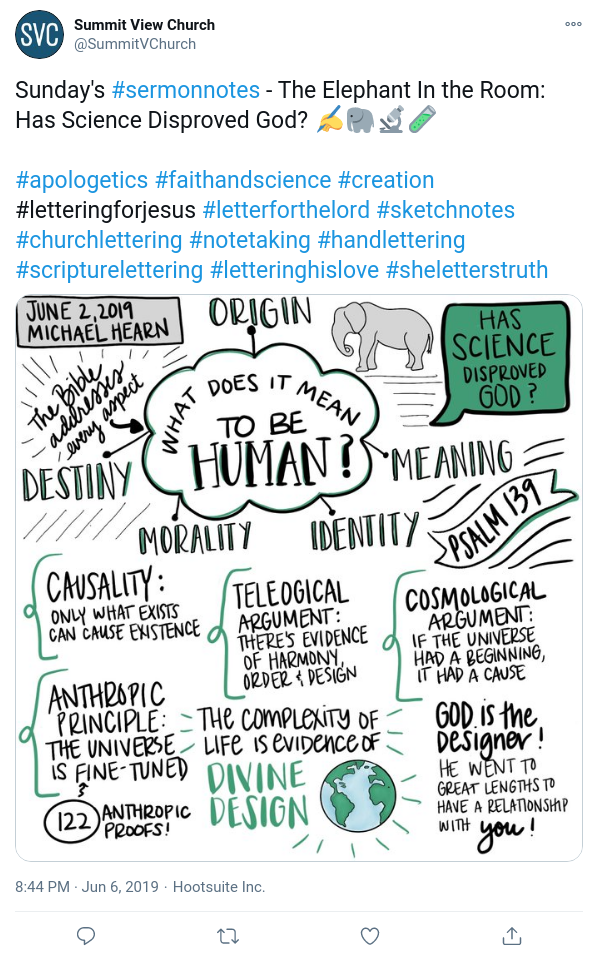 SVC
Summit View Church
@SummitVChurch
Sunday's #sermonnotes - The Elephant In the Room:
Has Science Disproved God? ✍️🐘🔬🧪
#apologetics #faithandscience #creation
#letteringforjesus #letterforthelord #sketchnotes
#churchlettering #notetaking #handlettering
#scripturelettering #letteringhislove #sheletterstruth
JUNE 2, 2019
MICHAEL HEARN
ORIGIN
HAS
SCIENCE
DISPROVED
GOD?
The Bible
addresses
every aspect
WHAT DOES IT MEAN
TO BE
HUMAN?
DESTINY
MEANING
MORALITY
IDENTITY
PSALM 139
CAUSALITY:
ONLY WHAT EXISTS
CAN CAUSE EXISTENCE
TELEOGICAL
ARGUMENT:
THERE'S EVIDENCE
OF HARMONY,
ORDER & DESIGN
COSMOLOGICAL
ARGUMENT:
IF THE UNIVERSE
HAD A BEGINNING,
IT HAD A CAUSE
ANTHROPIC
PRINCIPLE:
THE UNIVERSE
IS FINE-TUNED
122 ANTHROPIC
PROOFS!
THE COMPLEXITY OF
LIFE IS EVIDENCE OF
DIVINE
DESIGN
GOD is the
Designer!
HE WENT TO
GREAT LENGTHS TO
HAVE A RELATIONSHIP
WITH you!
8:44 PM · Jun 6, 2019 · Hootsuite Inc.